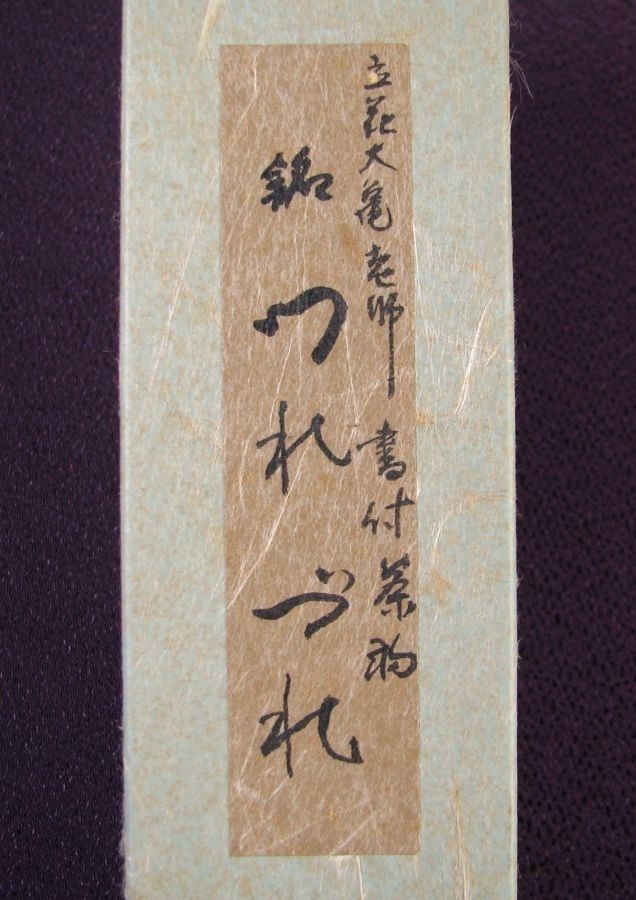 立花大亀老師 書付茶杓
銘 つれづれ